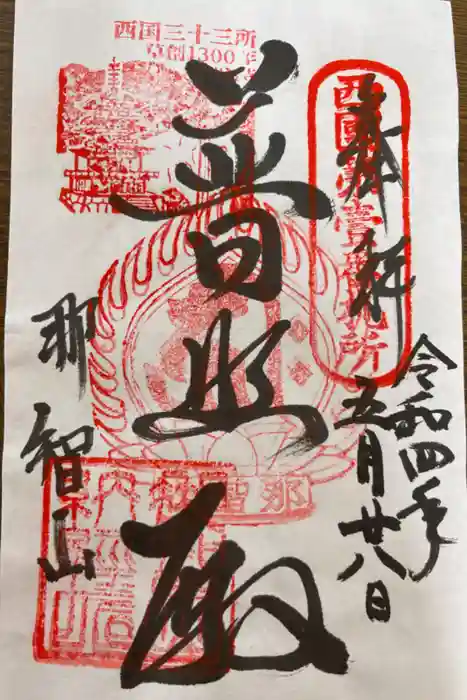 奉拝
西國第壹番札所
令和四年
五月廿八日
普照殿
西国三十三所
草創1300年
那智山
那智山